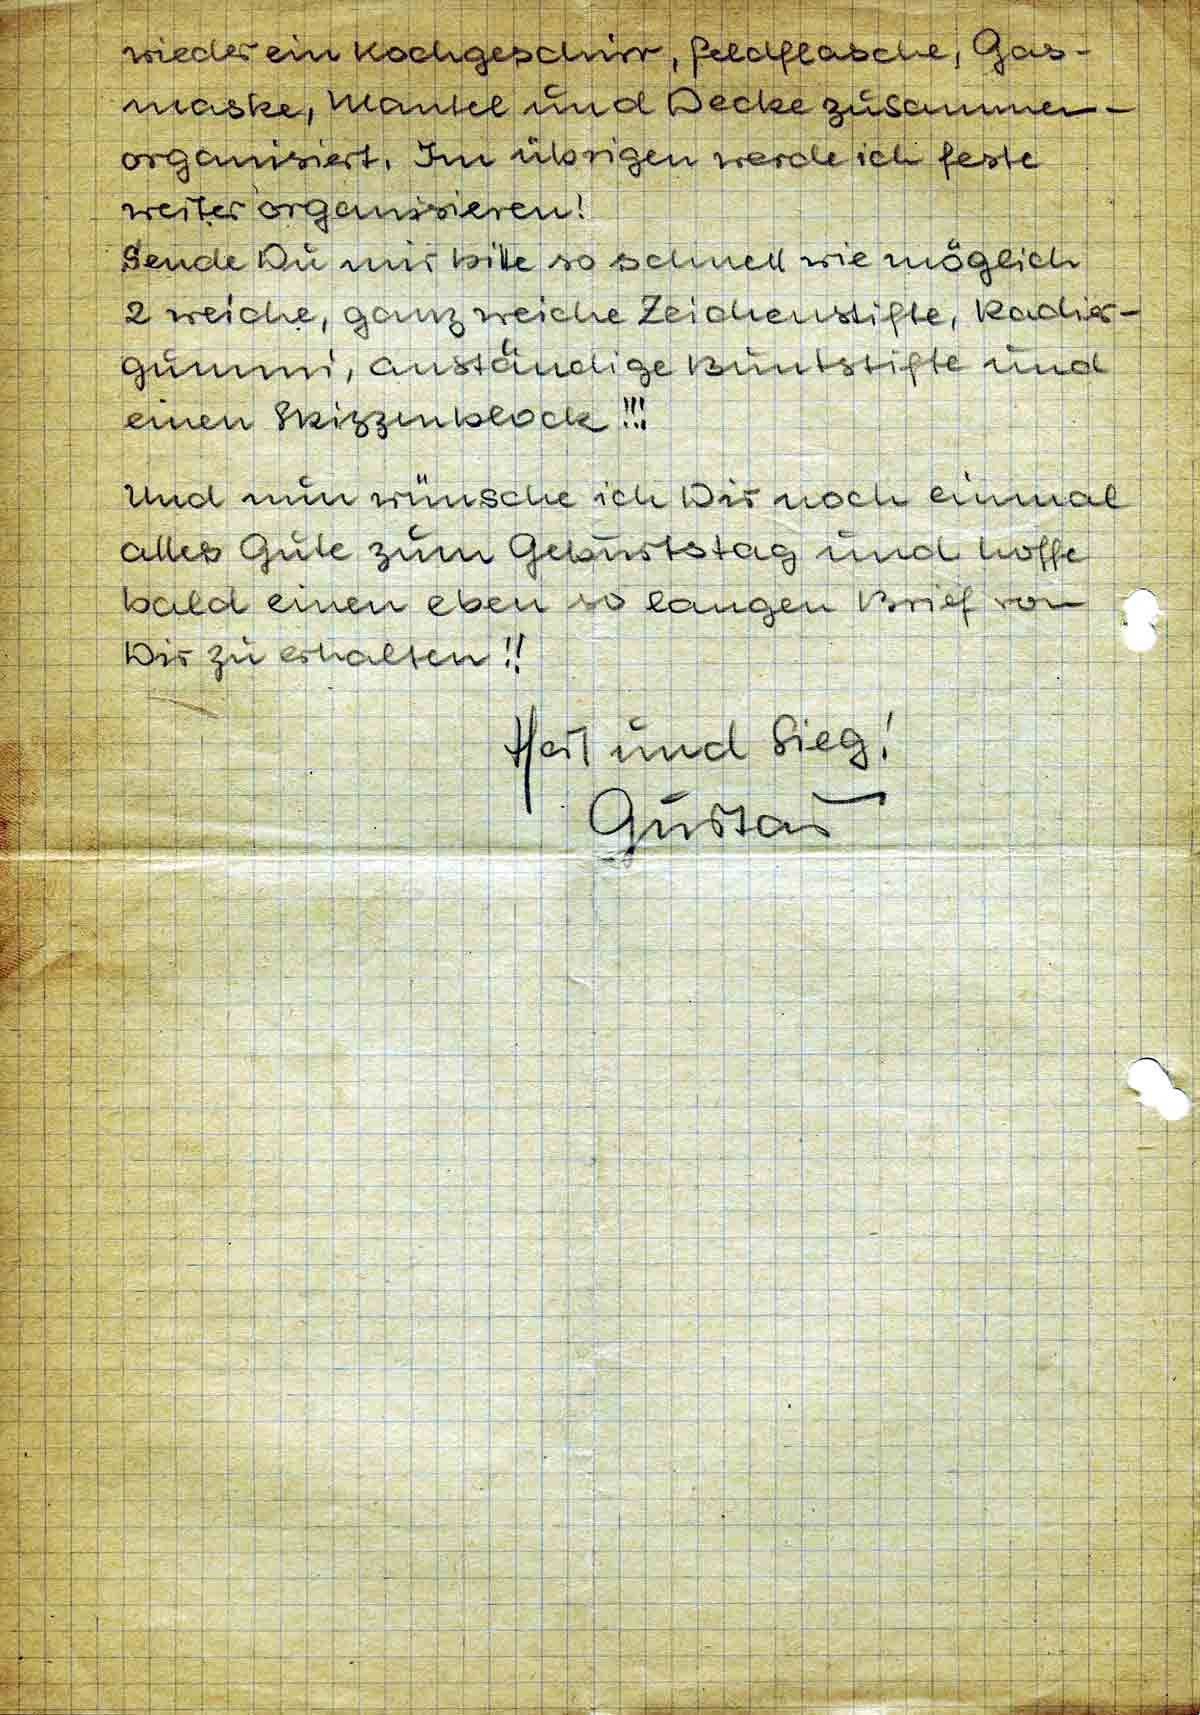 wieder ein Kochgeschirr, Feldflasche, Gas-
maske, Mantel und Decke zusammen-
organisiert. Im übrigen werde ich feste
weiter organisieren!
Sende Du mir bitte so schnell wie möglich
2 weiche, ganz weiche Zeichenstifte, Radier-
gummi, anständige Buntstifte und
einen Skizzenblock!!!
Und nun wünsche ich Dir noch einmal
alles Gute zum Geburtstag und hoffe
bald einen eben so langen Brief von
Dir zu erhalten!!
Heil und Sieg!
Gustav